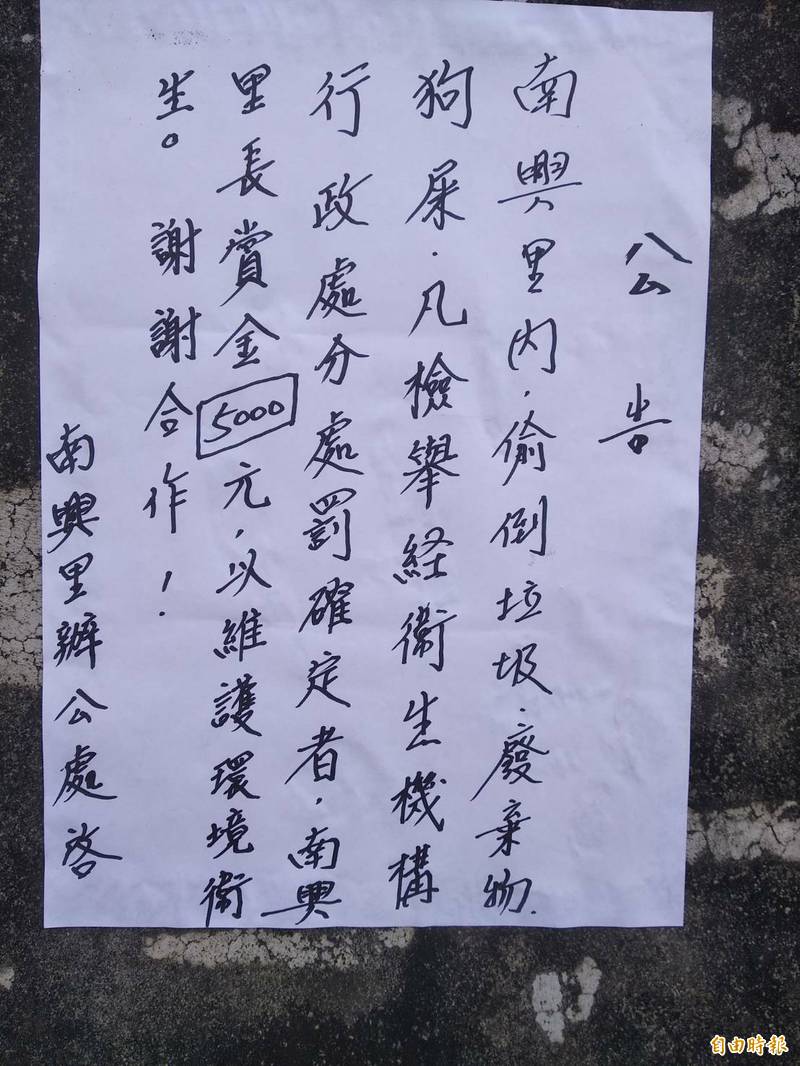 公告
南興里内，偷倒垃圾．廢棄物．
狗屎．凡檢舉経衛生機構
行政處分処罰確定者，南興
里長賞金5000元，以維護環境衛
生。謝謝合作！
南興里辦公處啓
自由時報